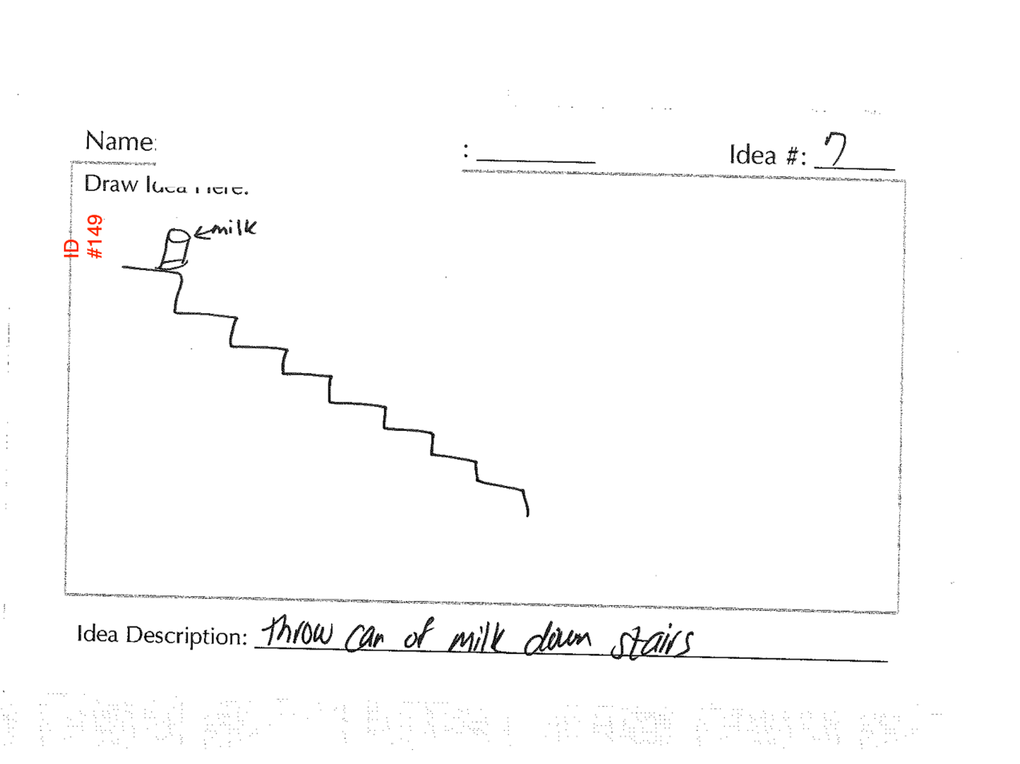 Name:
: ________ Idea #: 7
Draw Idea Here:
ID
#149
←milk
Idea Description: throw can of milk down stairs